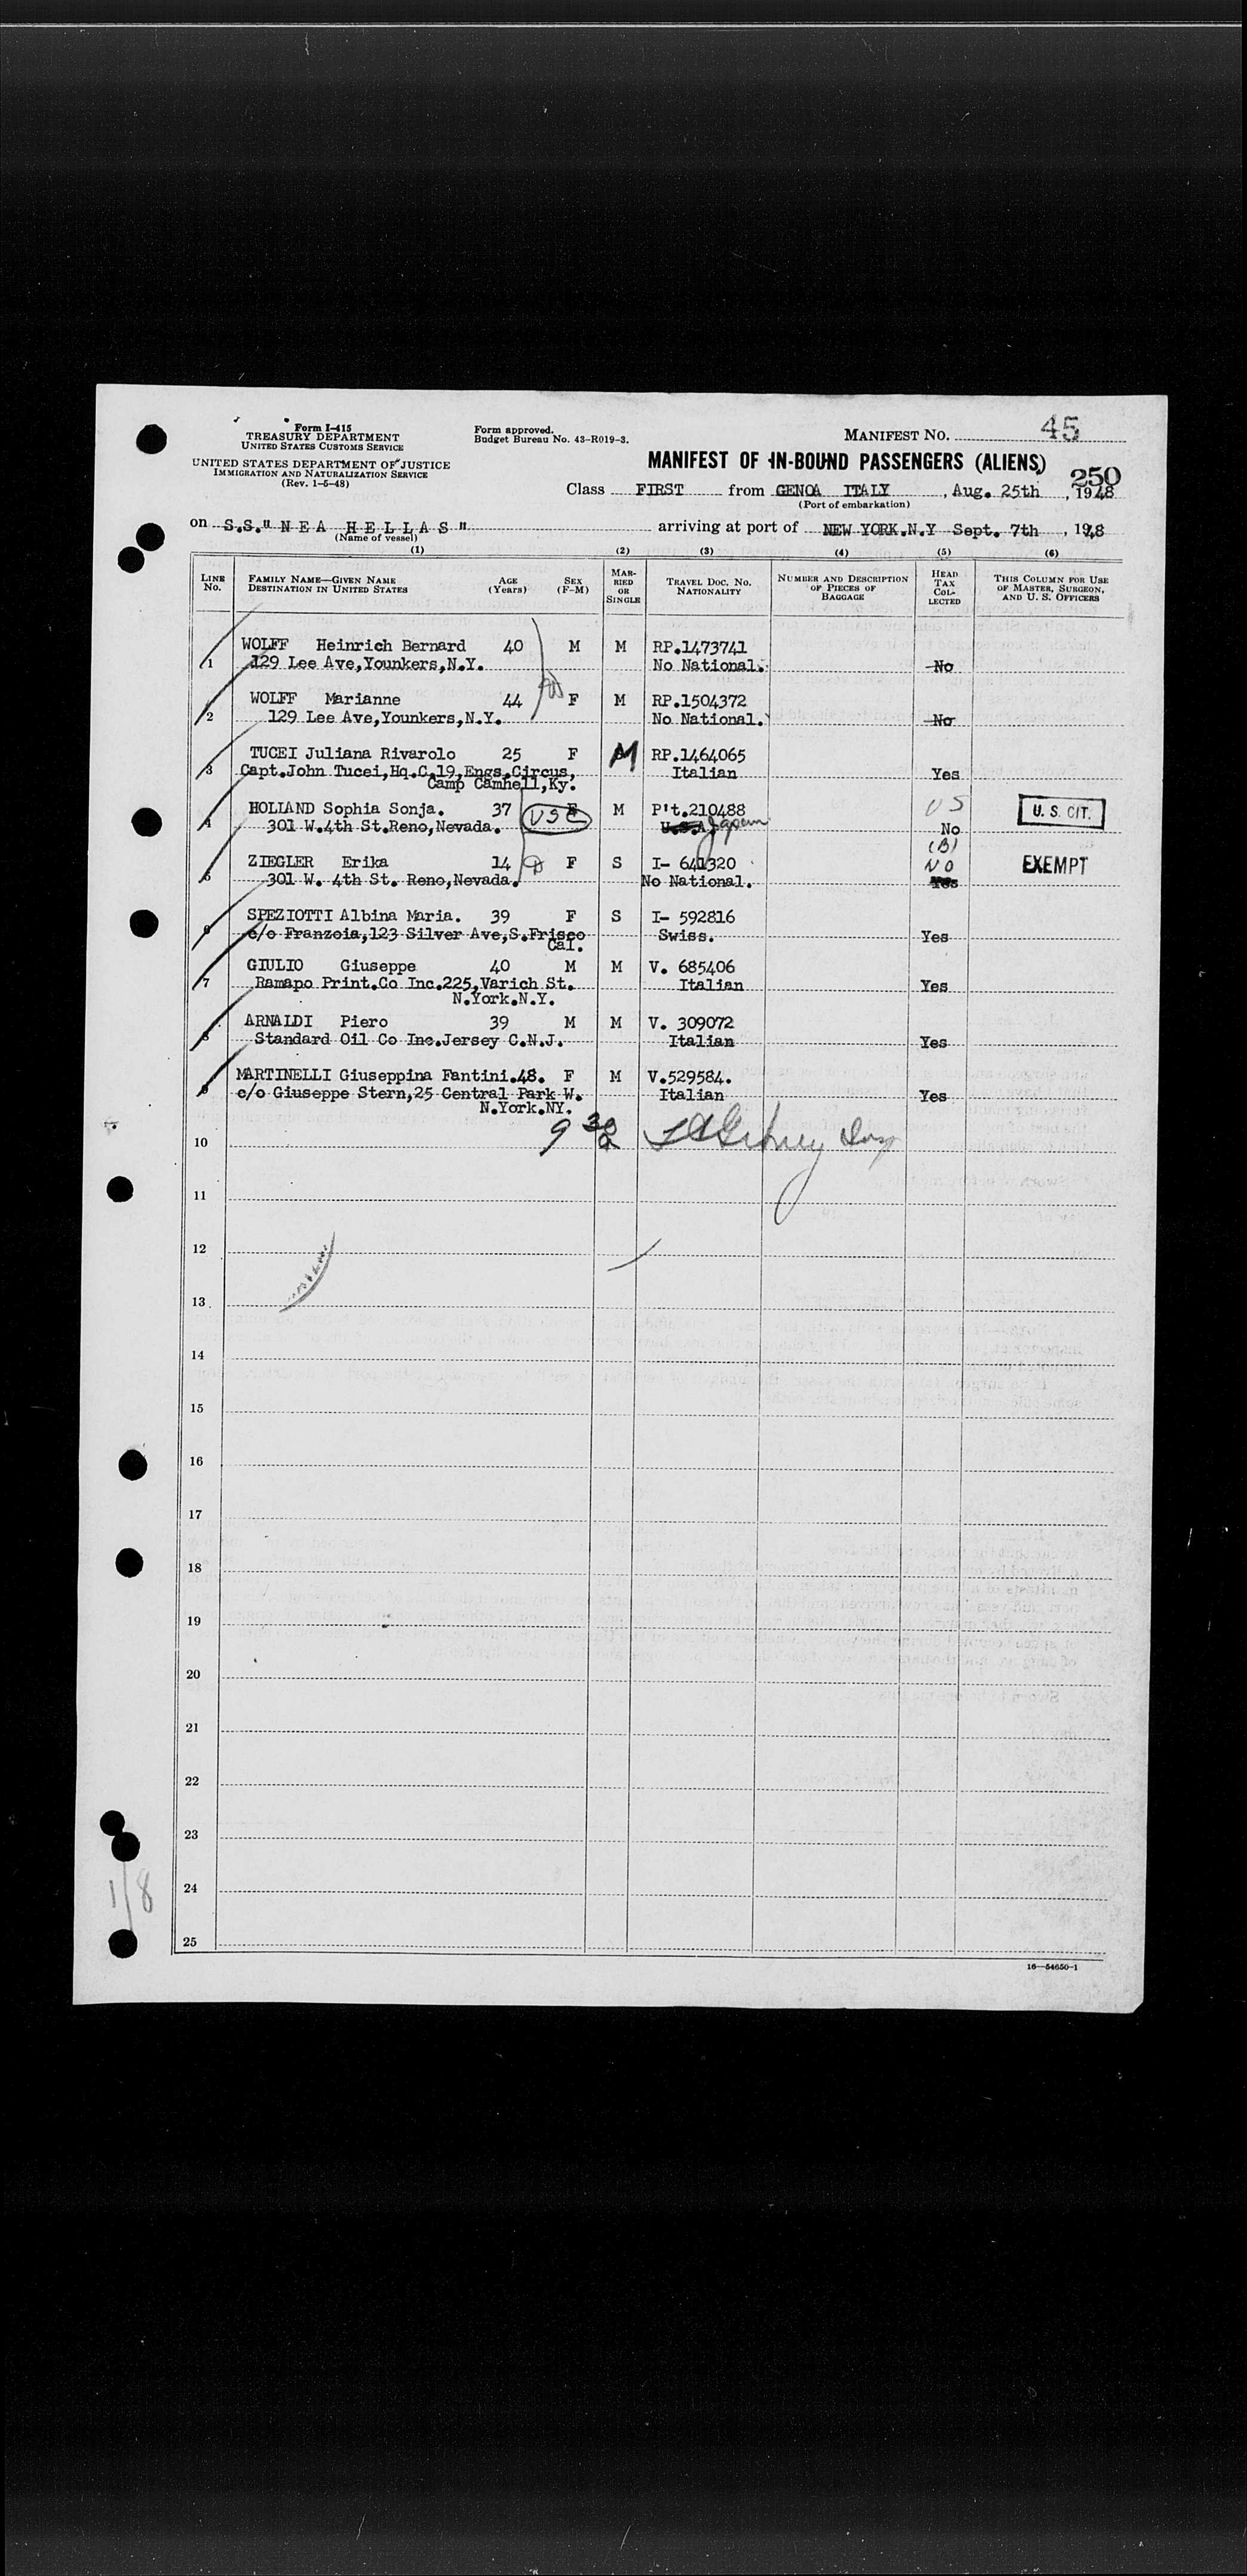 Form I-415
TREASURY DEPARTMENT
UNITED STATES CUSTOMS SERVICE
UNITED STATES DEPARTMENT OF JUSTICE
IMMIGRATION AND NATURALIZATION SERVICE
(Rev. 1-5-48)
Form approved.
Budget Bureau No. 43-R019-3.
MANIFEST NO. 45
MANIFEST OF IN-BOUND PASSENGERS (ALIENS)
250
Class FIRST from GENOA ITALY, Aug. 25th, 1948
(Port of embarkation)
on S.S." N E A H E L L A S " arriving at port of NEW YORK.N.Y Sept. 7th, 1948
(Name of vessel)
(1) (2) (3) (4) (5) (6)
LINE No. FAMILY NAME—GIVEN NAME DESTINATION IN UNITED STATES AGE (Years) SEX (F-M) MARRIED OR SINGLE TRAVEL DOC. NO. NATIONALITY NUMBER AND DESCRIPTION OF PIECES OF BAGGAGE HEAD TAX COLLECTED THIS COLUMN FOR USE OF MASTER, SURGEON, AND U. S. OFFICERS
WOLFF Heinrich Bernard 40 M M RP.1473741
1 129 Lee Ave,Younkers,N.Y. No National. No
WOLFF Marianne 44 F M RP.1504372
2 129 Lee Ave,Younkers,N.Y. No National. No
TUCEI Juliana Rivarolo 25 F M RP.1464065
3 Capt.John Tucei,Hq.C.19,Engs.Circus, Italian Yes
Camp Camhell,Ky.
HOLLAND Sophia Sonja. 37 USC F M P't.210488 US U. S. CIT.
4 301 W.4th St.Reno,Nevada. U.S.A. No
(B)
ZIEGLER Erika 14 F S I- 641320 NO EXEMPT
5 301 W. 4th St. Reno,Nevada. No National. Yes
SPEZIOTTI Albina Maria. 39 F S I- 592816
6 c/o Franzoia,123 Silver Ave,S.Frisco Swiss. Yes
Cal.
GIULIO Giuseppe 40 M M V. 685406
7 Ramapo Print.Co Inc.225,Varich St. Italian Yes
N.York.N.Y.
ARNALDI Piero 39 M M V. 309072
8 Standard Oil Co Inc.Jersey C.N.J. Italian Yes
MARTINELLI Giuseppina Fantini.48. F M V.529584.
9 c/o Giuseppe Stern,25 Central Park W. Italian Yes
N.York.NY.
9 30
10
11
12
13
14
15
16
17
18
19
20
21
22
23
24
25
1/8
16—54650-1